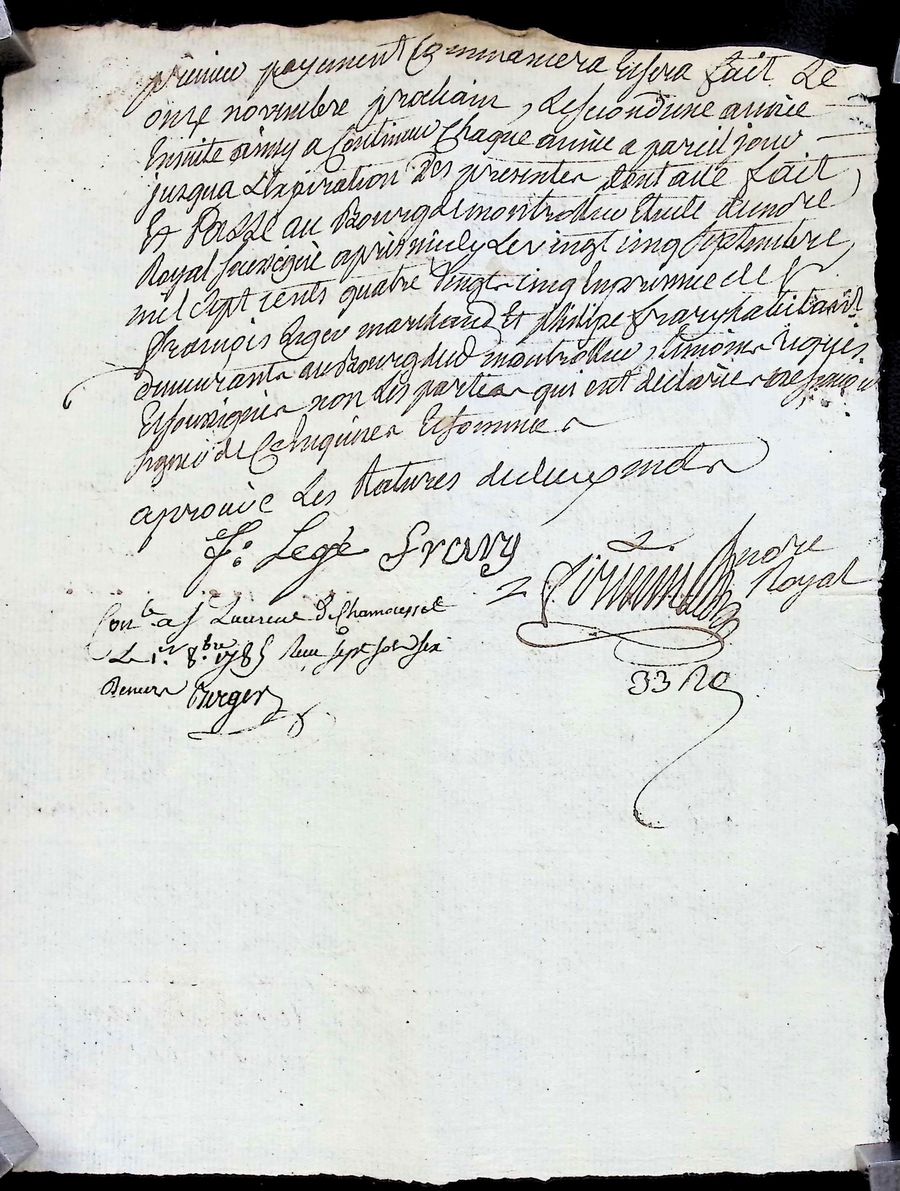 premier payement Commancera Et sera fait Le
onze novembre prochain, Le second une année
Ensuite ainsy a Continuer Chaque année a pareil jour
jusqua L'expiration Des presentes Dont acte fait
Et Passé au Bourg de montrottier Etude dandré
Royal soussigné apres midy Le vingt cinq Septembre
mil sept cents quatre vingt cinq En presence de Sr
françois Leger marchand Et philipe frary habitant
demeurants au Bourg dud montrottier, temoins requis
Et soussignés non Les parties qui ont déclarées ne sçavoir
signer de Ce Enquises Et sommées
aprouvé Les Ratures de deux mots
f: Legé frary
André
Royal
Conlé a St Laurent D Chamousset
Le 1er 8bre 1785 Reçu sept sols six
Deniers Burger
33 Ro